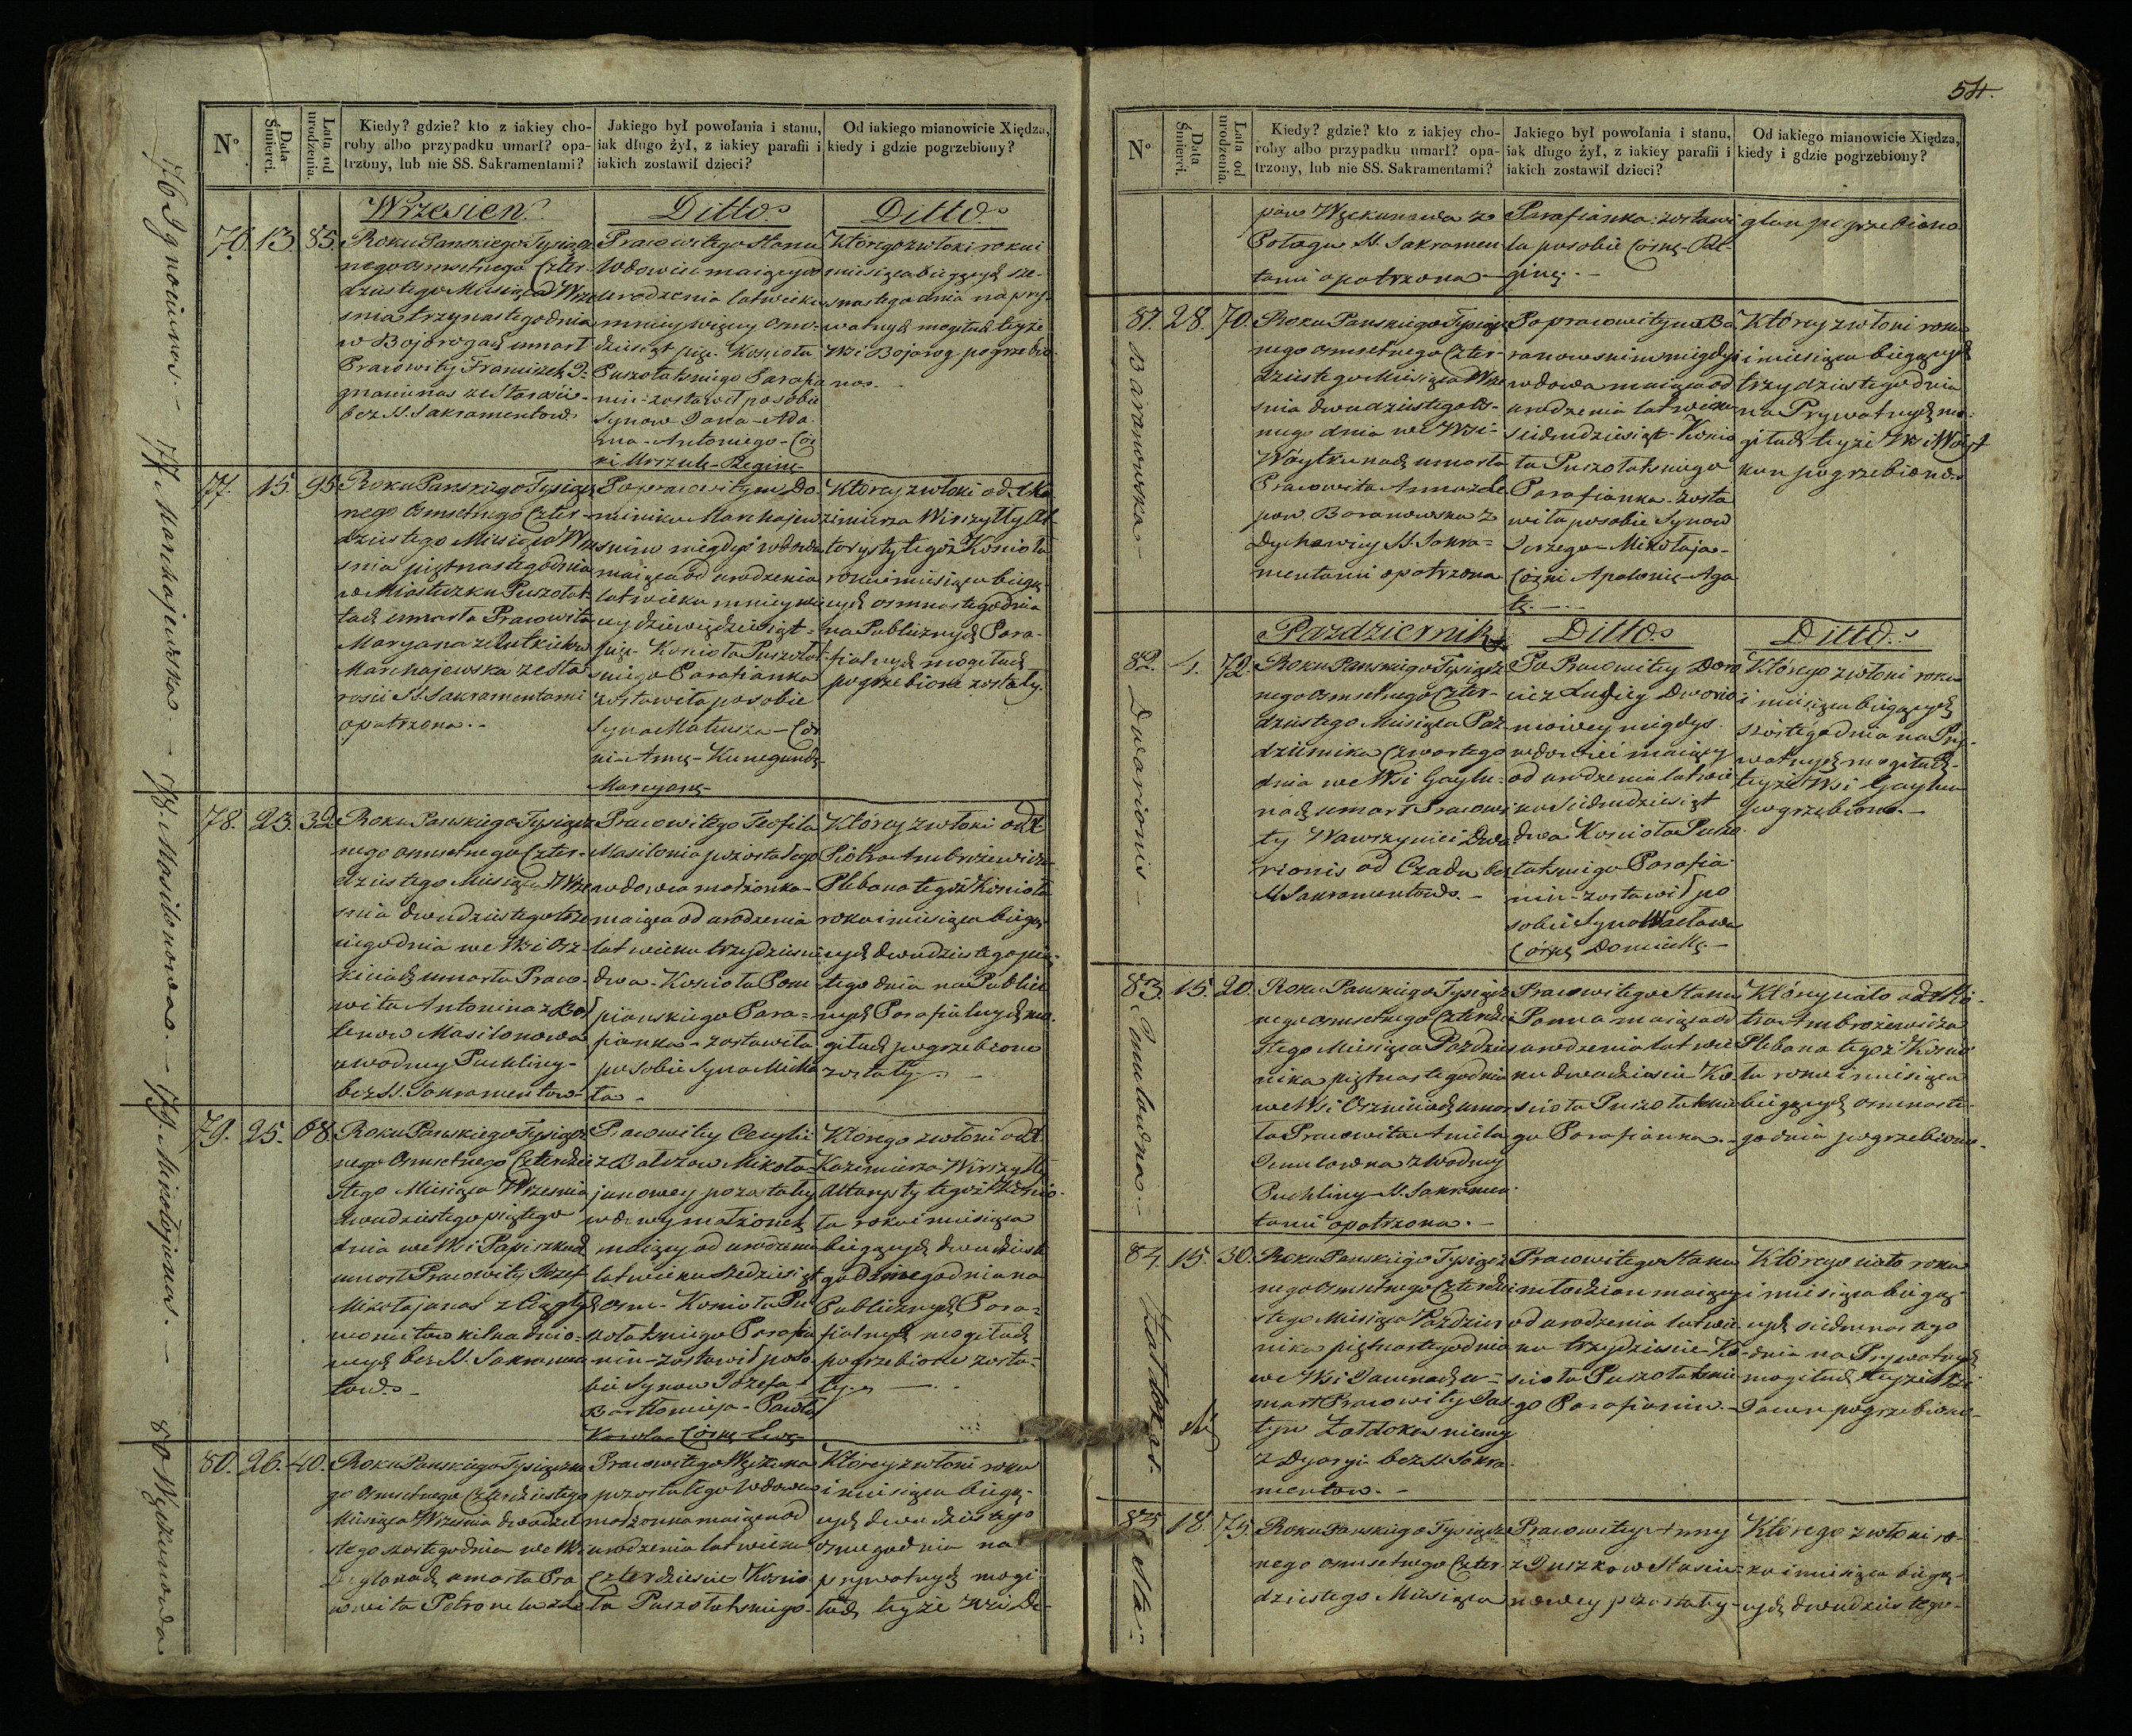 54.
N°
Data Śmierci.
Lata od urodzenia.
Kiedy? gdzie? kto z iakiey cho-
roby albo przypadku umarł? opa-
trzony, lub nie SS. Sakramentami?
Jakiego był powołania i stanu,
iak długo żył, z iakiey parafii i
iakich zostawił dzieci?
Od iakiego mianowicie Xiędza,
kiedy i gdzie pogrzebiony?
Wrzesien
Ditto
Ditto
76. 13. 85.
Roku Panskiego Tysiącz
nego osmsetnego Czter-
dziestego Miesiąca Wrze
snia trzynastego dnia
w Bojorogach umarł
Pracowity Franciszek
ze Starości
bez SS. Sakramentow
Pracowitego Stanu
Wdowiec maiący od
urodzenia lat wieku
mniey więcey osm-
dziesiąt pięć Kościoła
Puszołatskiego Parafia
nin zostawił po sobie
Synow Jana - Ada
ma - Antoniego - Cor
ki Urszulę - Reginę
Którego zwłoki roku i
miesiąca bieżących sze-
snastego dnia na pry-
watnych mogiłach teyże
Wsi Bojorog pogrzebio
no.
77. 15. 95.
Roku Panskiego Tysiącz
nego Osmsetnego Czter-
dziestego Miesiąca Wrze
snia piętnastego dnia
w Miasteczku Puszołat
tach umarła Pracowita
Maryana
Marchajewska ze Sta
rosci SS. Sakramentami
opatrzona.
Po pracowitym Do-
miniku Marchajew
skim niegdyś wdowa
maiąca od urodzenia
lat wieku mniey wię
cey dziewięćdziesiąt
pięć Kościoła Puszołat
skiego Parafianka
zostawiła po sobie
Syna Mateusza - Cor
ki - Annę - Kunegundę
Maryanę
Którey zwłoki od X. Ka
zimierza Wirszyłły Al-
tarysty tegoż Kościoła
roku i miesiąca bieżą
cych osmnastego dnia
na Publicznych Para-
fialnych mogiłach
pogrzebione zostały.
78. 23. 32.
Roku Panskiego Tysiącz
nego osmsetnego Czter-
dziestego Miesiąca Wrze
snia dwudziestego trze
ciego dnia we Wsi
umarła Praco-
wita Antonina z
Masilonowa
z wodney Puchliny
bez SS. Sakramentow
Pracowitego Teofila
Masilonia pozostałego
wdowca małżonka
maiąca od urodzenia
lat wieku trzydzieści
dwa Kościoła Pom
pianskiego Para-
fianka - zostawiła
po sobie Syna Micha
ła
Którey zwłoki od X.
Piotra Ambrożewicza
Plebana tegoż Kościoła
roku i miesiąca bieżą
cych dwudziestego pią
tego dnia na Publicz
nych Parafialnych mo
giłach pogrzebione
zostały.
79. 25. 68.
Roku Panskiego Tysiącz
nego Osmsetnego Czterdzie
stego Miesiąca Wrzesnia
dwudziestego piątego
dnia we Wsi Papiszkach
umarł Pracowity Józef
Mikołajunas z Ciągłych
womitow kilkadnio-
wych bez SS. Sakramen
tow.
Pracowitey Cecylii
z Balszow Mikoła-
junowey pozostałey
wdowy małżonek
maiący od urodzenia
lat wieku sześdziesiąt
osm - Kościoła Pu
szołatskiego Parafia
nin - zostawił po so
bie Synow Józefa
Bartłomieja - Pawła
Karola - Corkę Ewę
Którego zwłoki od X.
Kazimierza Wirszyłły
Altarysty tegoż Kościo
ła roku i miesiąca
bieżących dwudzieste
go osmego dnia na
Publicznych Para-
fialnych mogiłach
pogrzebione zosta-
ły.
80. 26. 40.
Roku Panskiego Tysiączne
go Osmsetnego Czterdziestego
Miesiąca Wrzesnia dwudzie
stego szostego dnia we Wsi
umarła Pra
cowita Petronela
Pracowitego
pozostałego wdowca
małżonka maiąca od
urodzenia lat wieku
Czterdzieście Kościo
ła Puszołatskiego
Którey zwłoki roku
i miesiąca bieżą-
cych dwudziestego
osmego dnia na
prywatnych mogi
łach teyże Wsi De-
76 Ignowiunas. - 77. Marchajewska. - 78. Masilonowa. - 79. Mikołajunas. - 80
N°
Data Śmierci.
Lata od urodzenia.
Kiedy? gdzie? kto z iakiey cho-
roby albo przypadku umarł? opa-
trzony, lub nie SS. Sakramentami?
Jakiego był powołania i stanu,
iak długo żył, z iakiey parafii i
iakich zostawił dzieci?
Od iakiego mianowicie Xiędza,
kiedy i gdzie pogrzebiony?
z
Połogu SS. Sakramen
tami opatrzona
Parafianka: zostawi
ła po sobie Corkę
glan pogrzebiono
81. 28. 70.
Baranowska
Roku Panskiego Tysiącz
nego osmsetnego Czter-
dziestego Miesiąca Wrze
snia dwudziestego os-
mego dnia we Wsi
Wóytkunach umarła
Pracowita Anna
Baranowska z
Dychawicy SS. Sakra-
mentami opatrzona
Po pracowitym Ba
ranowskim niegdyś
wdowa maiąca od
urodzenia lat wieku
siedmdziesiąt Kościo
ła Puszołatskiego
Parafianka - zosta
wiła po sobie Synow
Jerzego - Mikołaja -
Corki Apolonię - Aga
tę.
Którey zwłoki roku
i miesiąca bieżących
trzydziestego dnia
na Prywatnych mo-
giłach teyże Wsi Wóyt
kun pogrzebiono.
Pazdziernik
Ditto
Ditto
82. 4. 72.
Dwarionis
Roku Panskiego Tysiącz
nego osmsetnego Czter-
dziestego Miesiąca Paz-
dziernika Czwartego
dnia we Wsi Gaylu-
nach umarł Pracowi
ty Wawrzyniec Dwa
rionis od Czadu bez
SS. Sakramentow.
Po Pracowitey Doro
cie z Dwario
niowey niegdys
wdowiec maiący
od urodzenia lat wie
ku Siedmdziesiąt
dwa Kościoła Puszo
łatskiego Parafia
nin - zostawił po
sobie Syna Wacława
Córkę Dominikę
Którego zwłoki roku
i miesiąca bieżących
szóstego dnia na Pry-
watnych mogiłach
teyże Wsi Gaylun
pogrzebiono.
83. 15. 20.
Roku Panskiego Tysiącz
nego osmsetnego Czterdzie
stego Miesiąca Pazdzier
nika piętnastego dnia
we Wsi umar
ła Pracowita Aniela
z Wodney
Puchliny SS. Sakramen
tami opatrzona.
Pracowitego Stanu
Panna maiąca od
urodzenia lat wie
ku dwadzieście Ko
ścioła Puszołatskie
go Parafianka.
Którey ciało od X. Pio
tra Ambrożewicza
Plebana tegoż Koscio
ła roku i miesiąca
bieżących osmnaste
go dnia pogrzebione.
84. 15. 30.
Żałdokas.
Roku Panskiego Tysiącz
nego osmsetnego Czterdzie
stego Miesiąca Pazdzier
nika piętnastego dnia
we Wsi u-
marł Pracowity Jus
tyn Żałdokas niemy
z Dyaryi bez SS. Sakra
mentow.
Pracowitego Stanu
młodzian maiący
od urodzenia lat wie
ku trzydzieście Ko
ścioła Puszołatskie
go Parafianin.
Którego ciało roku
i miesiąca bieżą-
cych siedmnastego
dnia na Prywatnych
mogiłach teyże Wsi
pogrzebiono
85. 18. 75.
Sta-
Roku Panskiego Tysiącz
nego osmsetnego Czter-
dziestego Miesiąca
Pracowitey Anny
z Juszkow Stasiu-
nowey pozostałey
Którego zwłoki ro-
ku i miesiąca bieżą-
cych dwudziestego